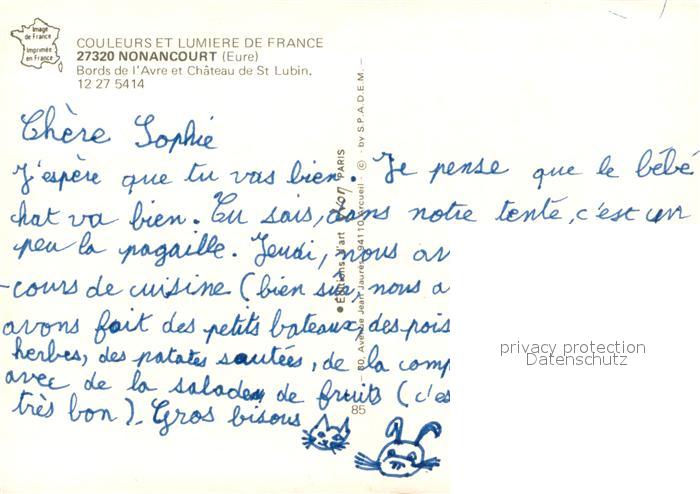 Image
de France
Imprimée
en France
COULEURS ET LUMIERE DE FRANCE
27320 NONANCOURT (Eure)
Bords de l'Avre et Château de St Lubin.
12 27 5414
Chère Sophie
J'espère que tu vas bien. Je pense que le bébé
chat va bien. Tu sais, dans notre tente, c'est un
peu la pagaille. Jeudi, nous av
-cours de cuisine (bien sûr, nous a
avons fait des petits bateaux des pois
herbes, des patates sautées, de la comp
avec de la salade de fruits (c'es
très bon). Gros bisous
● Editions d'art yvon PARIS
80, Avenue Jean Jaurès, 94110 Arcueil - © - by S.P.A.D.E.M. -
85
privacy protection
Datenschutz